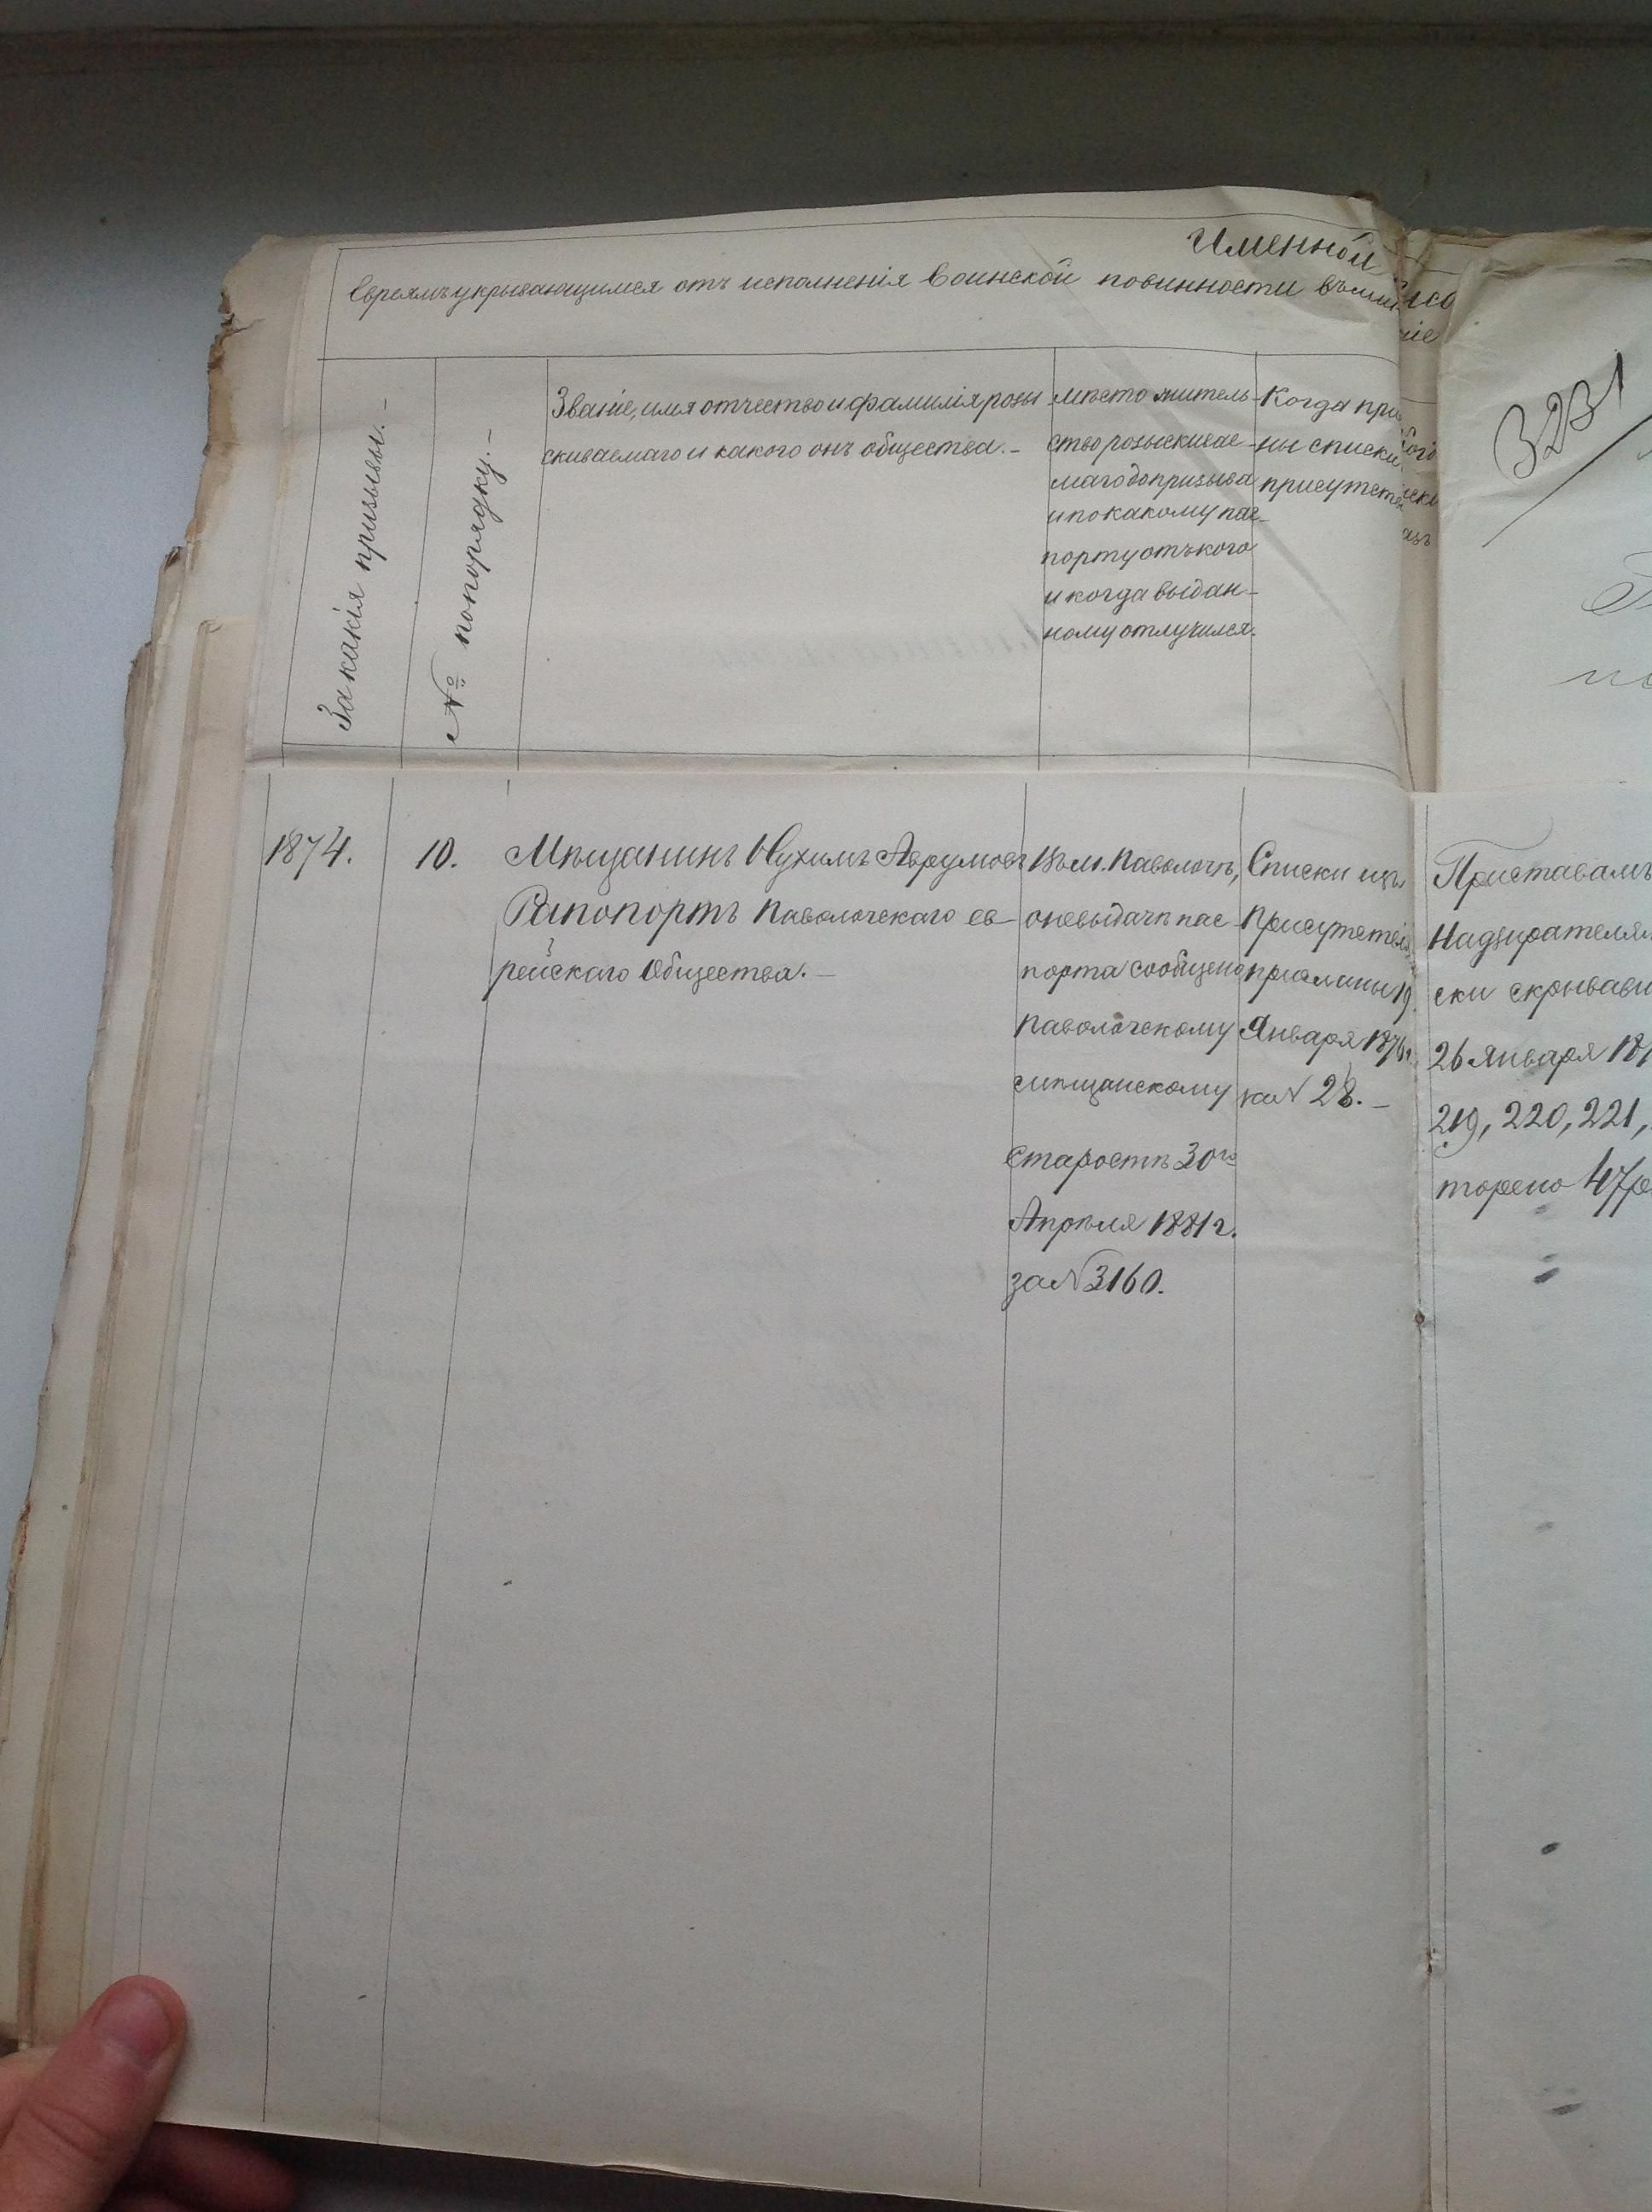 Именной
Евреямъ укрывающимся отъ исполненія Воинской повинности
За какія призывы. –
№ по порядку. –
Званіе, имя отчество и фамилія розы
скиваемаго и какого онъ общества. –
мѣсто житель-
ство розыскивае-
маго до призыва
и по какому пас-
порту отъ кого
и когда выдан-
ному отлучился.
Когда при
ны списки
присутств
3231
1874.
10.
Мѣщанинъ Нухимъ Аврумовъ
Рапопортъ Паволочскаго ев-
рейскаго Общества. –
Въ м. Паволочѣ,
о невыдачѣ пас-
порта сообщено
Паволочскому
мѣщанскому
Старостѣ 30го
Апрѣля 1881 г.
за № 3160.
Списки изъ
Присутствія
присланы 19
Января 1876 г.
за № 28. –
Приставамъ
Надзирателям
ски скрывавш
26 января 187
219, 220, 221,
торено 47 р